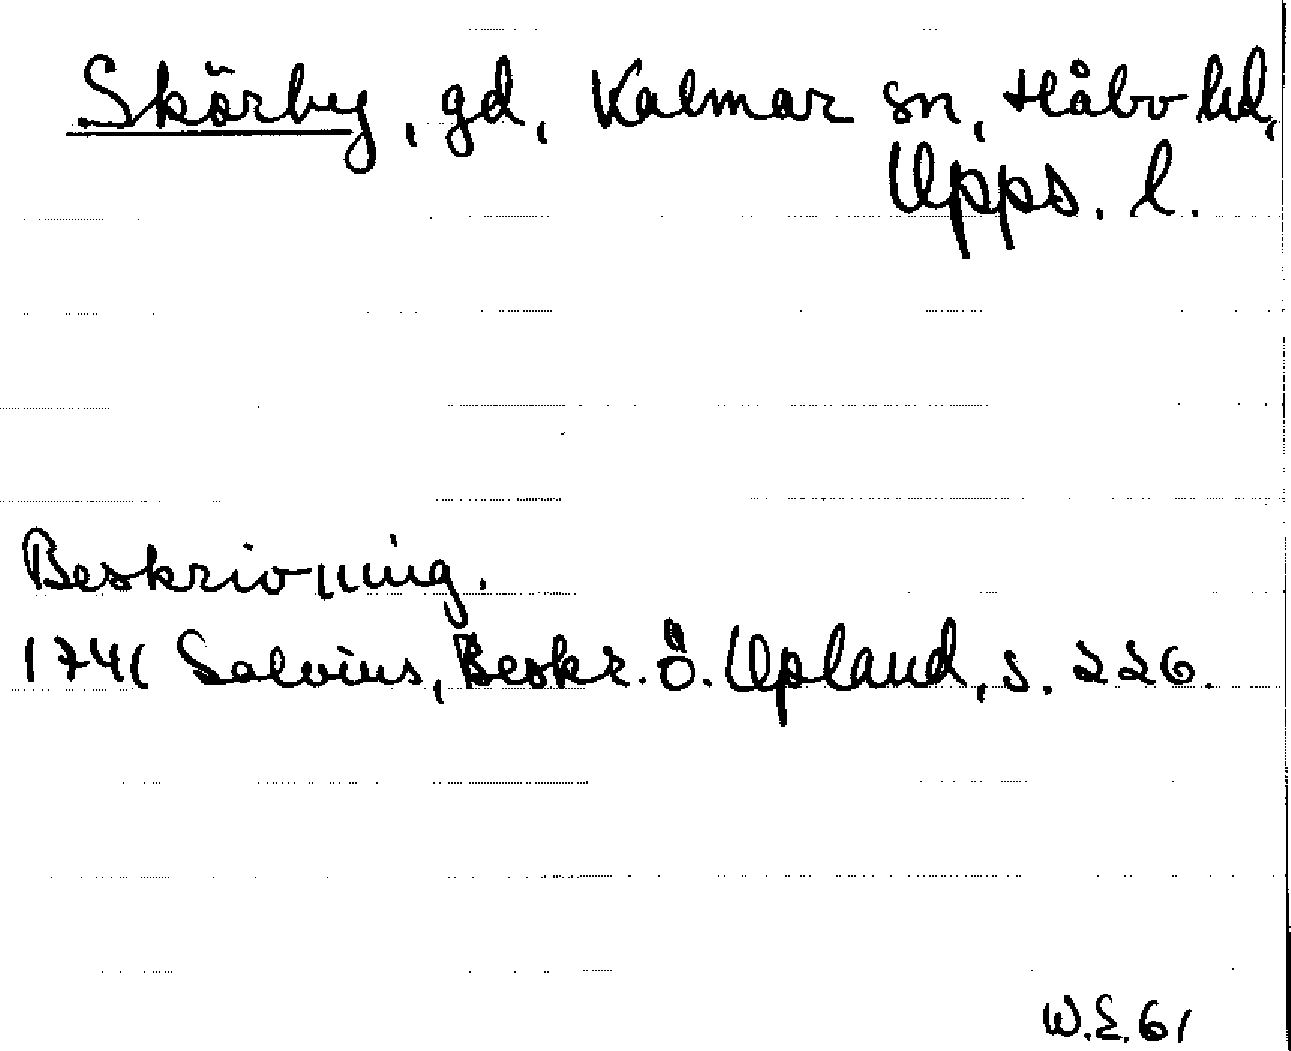 Skörby, gd, Kalmar sn, Håbo hd,
Upps. l.
Beskrivning.
1741 Salvius, Beskr. Ö. Upland, s. 226.
W.E. 61